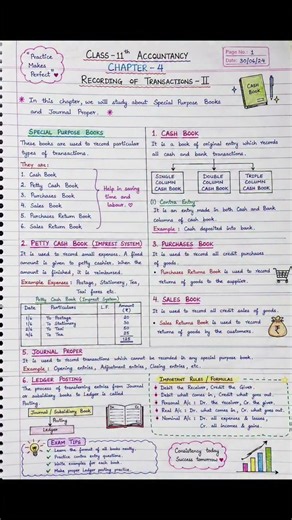 Practice
Makes
Perfect
CLASS-11th ACCOUNTANCY
CHAPTER - 4
RECORDING OF TRANSACTIONS - II
Page No.: 1
Date: 30/06/24
CASH
BOOK
In this chapter, we will study about Special Purpose Books
and Journal Proper.
SPECIAL PURPOSE BOOKS
These books are used to record particular
types of transactions.
They are:
1. Cash Book
2. Petty Cash Book
3. Purchases Book
4. Sales Book
5. Purchases Return Book
6. Sales Return Book
Help in saving
time and
labour.
1. CASH BOOK
It is a book of original entry which records
all cash and bank transactions.
SINGLE
COLUMN
CASH BOOK
DOUBLE
COLUMN
CASH BOOK
TRIPLE
COLUMN
CASH BOOK
(i) Contra Entry
It is an entry made in both Cash and Bank
columns of cash book.
Example: Cash deposited into bank.
2. PETTY CASH BOOK (IMPREST SYSTEM)
It is used to record small expenses. A fixed
amount is given to petty cashier, when the
amount is finished, it is reimbursed.
Example Expenses: Postage, Stationery, Tea,
Taxi fares etc.
Petty Cash Book (Imprest System)
Date Particulars L.F. Amount
(₹)
To Postage
To Stationery
To Tea
To Taxi
3. PURCHASES BOOK
It is used to record all credit purchases
of goods.
Purchases Return Book is used to record
returns of goods to the supplier.
4. SALES BOOK
It is used to record all credit sales of
goods.
Sales Returns Book is used to record
returns of goods by the customers.
5. JOURNAL PROPER
It is used to record transactions which cannot be recorded in any special purpose book.
Example: Opening entries, Adjustment entries, Closing entries, etc.
6. LEDGER POSTING
The process of transferring entries from Journal
or subsidiary books to Ledger is called
Posting.
Journal / Subsidiary Book
Posting
Ledger
IMPORTANT RULES / FORMULAS
Debit the Receiver, Credit the Giver
Debit what comes in, Credit what goes out.
Personal A/c : Dr. the receiver, Cr. the giver.
Real A/c : Dr. what comes in, Cr. what goes out.
Nominal A/c : Dr. all expenses & losses,
Cr. all incomes & gains.
EXAM TIPS
Learn the format of all books neatly.
Practice contra entry questions.
Write examples for each book.
Make proper Ledger posting practice.
Consistency today
Success tomorrow